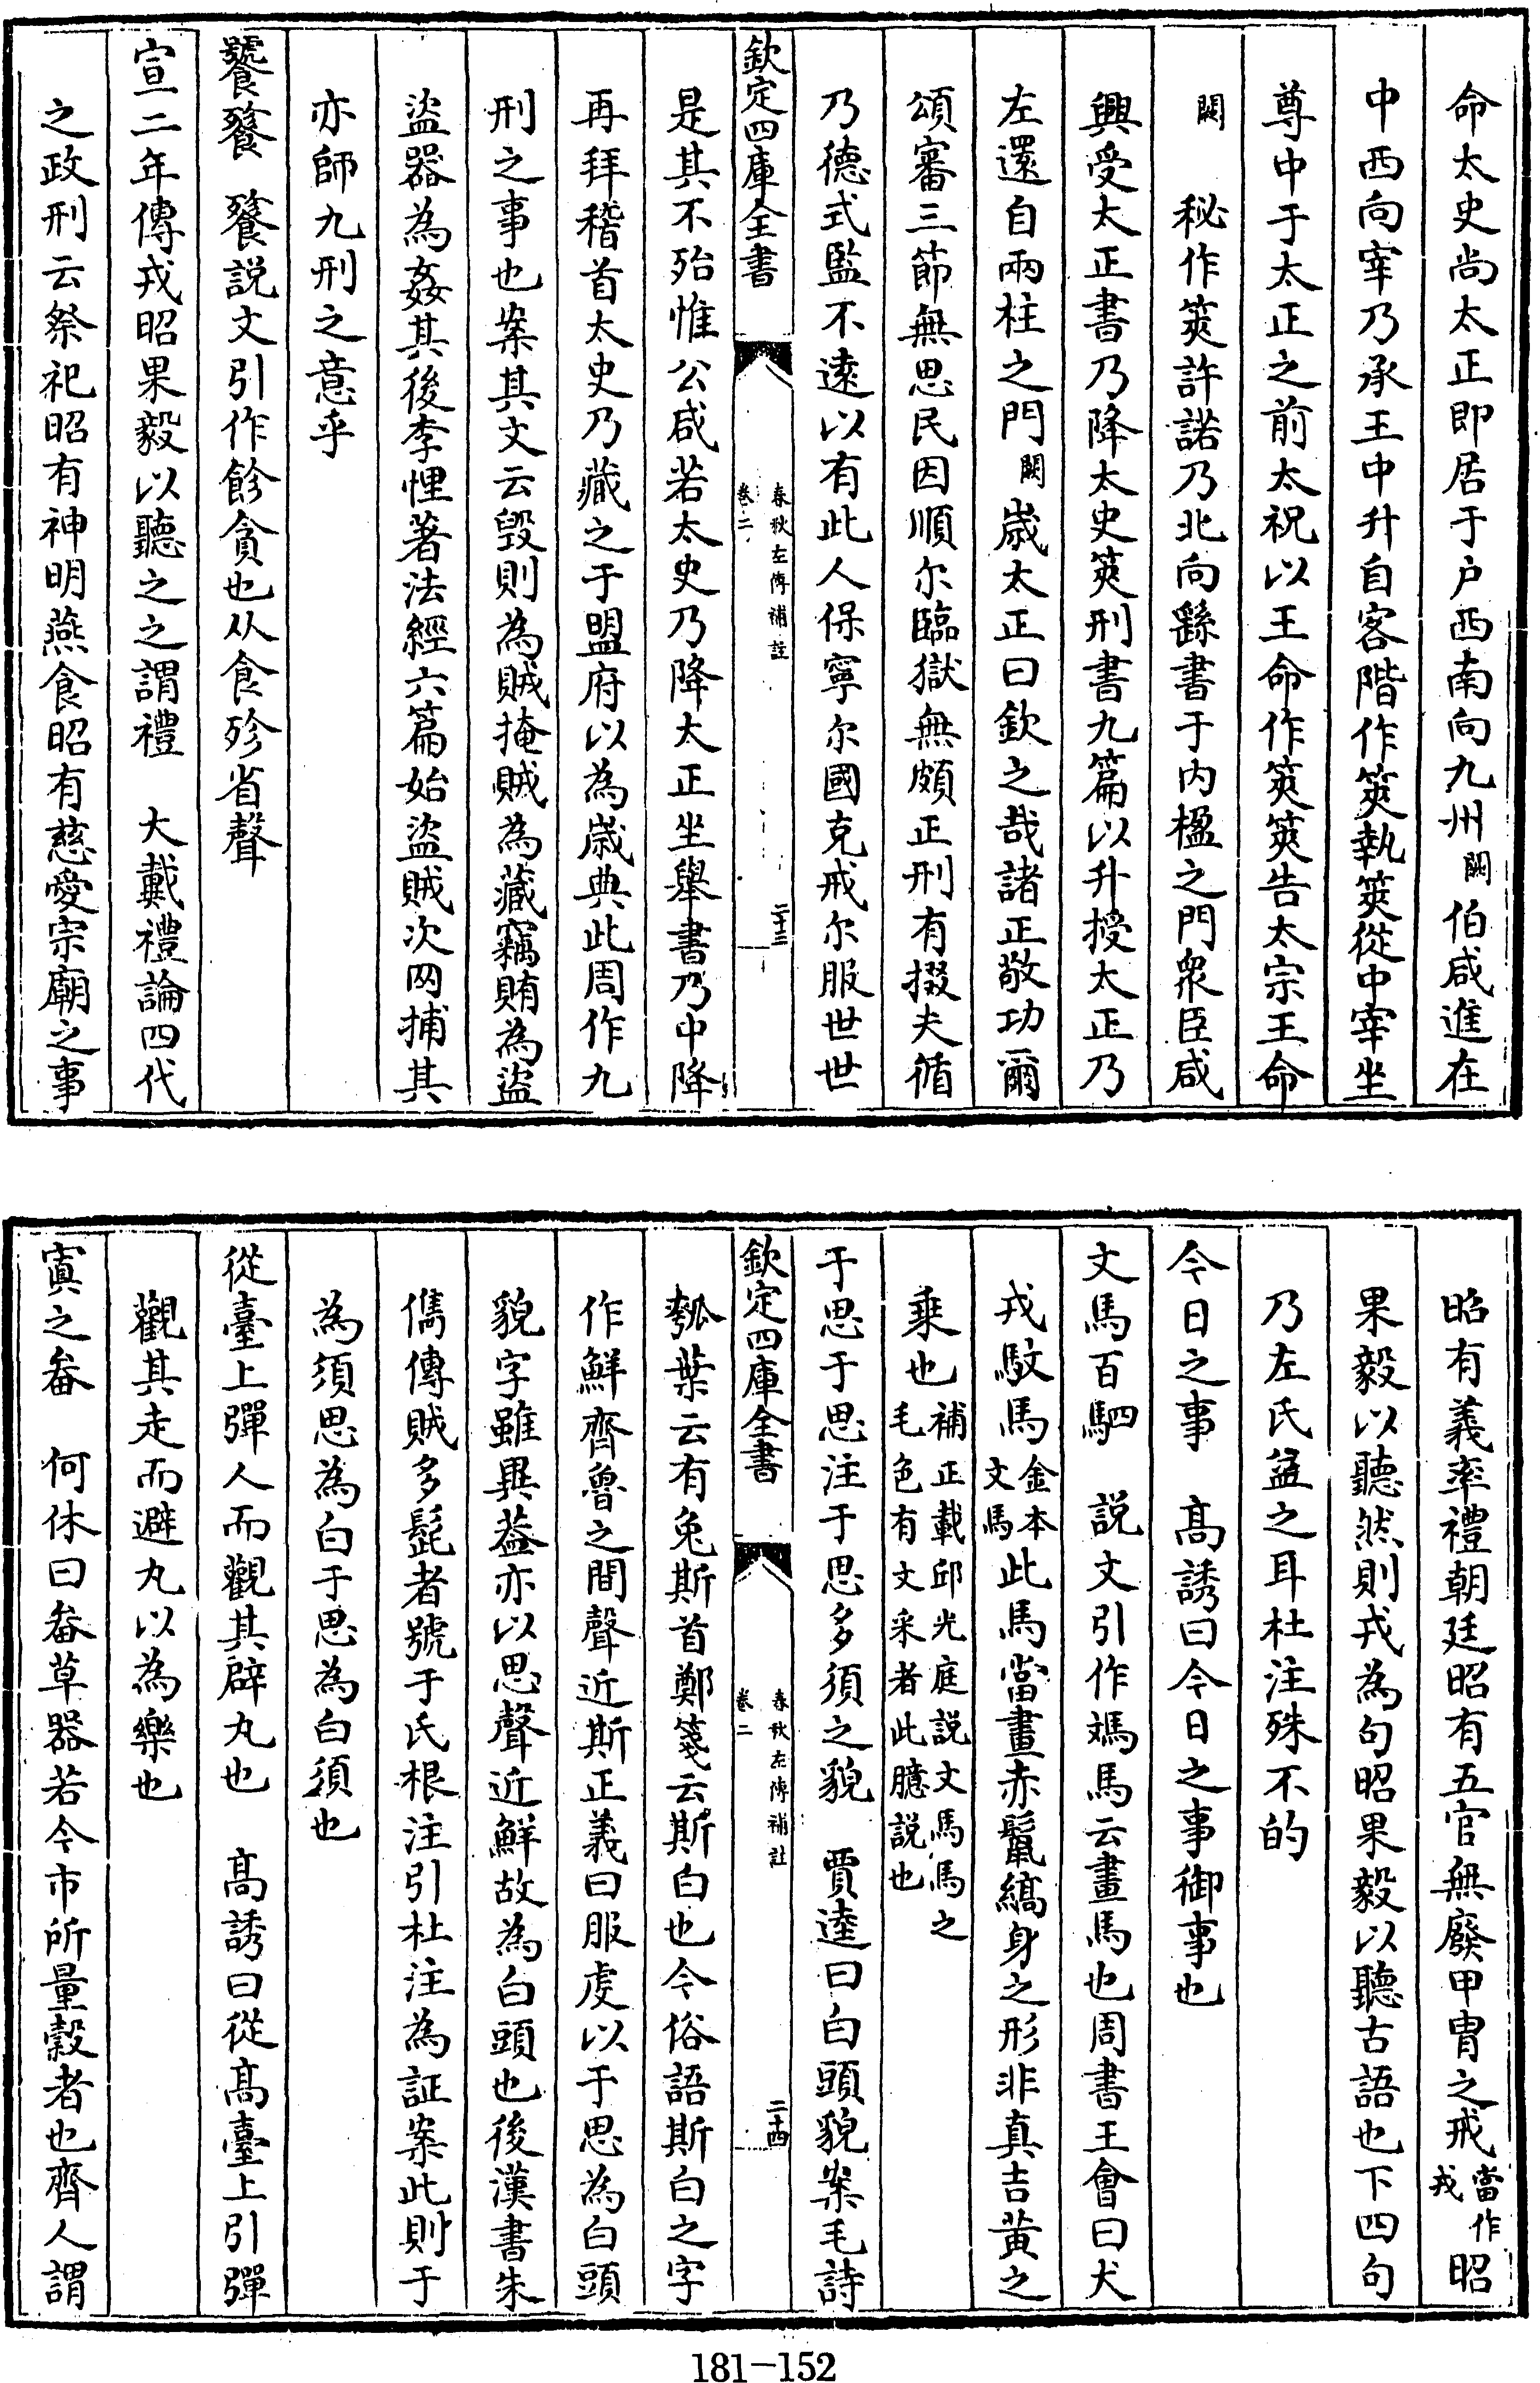 命太史尚太正即居于户西南向九州闕伯咸進在
中西向宰乃承王中升自客階作筴執筴從中宰坐
尊中于太正之前太祝以王命作筴筴告太宗王命
闕　秘作筴許諾乃北向繇書于内楹之門衆臣咸
興受太正書乃降太史筴刑書九篇以升授太正乃
左還自兩柱之門闕嵗太正曰欽之哉諸正敬功爾
頌審三節無思民因順尔臨獄無頗正刑有掇夫循
乃德式監不遠以有此人保寧尔國克戒尔服世世
欽定四庫全書
春秋左傳補註
卷二
二十三
是其不殆惟公咸若太史乃降太正坐舉書乃中降
再拜稽首太史乃藏之于盟府以為嵗典此周作九
刑之事也案其文云毀則為賊掩賊為藏竊賄為盜
盜器為姦其後李悝著法經六篇始盜賊次网捕其
亦師九刑之意乎
饕餮　餮説文引作飻貪也从食殄省聲
宣二年傳戎昭果毅以聽之之謂禮　大戴禮論四代
之政刑云祭祀昭有神明燕食昭有慈愛宗廟之事
昭有義率禮朝廷昭有五官無廢甲胄之戒當作戎昭
果毅以聽然則戎為句昭果毅以聽古語也下四句
乃左氏益之耳杜注殊不的
今日之事　髙誘曰今日之事御事也
文馬百駟　説文引作媽馬云畫馬也周書王會曰犬
戎駇馬金本文馬此馬當畫赤鬣縞身之形非真吉黄之
乗也補正載邱光庭説文馬馬之毛色有文采者此臆説也
于思于思注于思多須之貌　賈逵曰白頭貌案毛詩
欽定四庫全書
春秋左傳補註
卷二
二十四
瓠葉云有兔斯首鄭箋云斯白也今俗語斯白之字
作鮮齊魯之間聲近斯正義曰服虔以于思為白頭
貌字雖異葢亦以思聲近鮮故為白頭也後漢書朱
儁傳賊多髭者號于氐根注引杜注為証案此則于
為須思為白于思為白須也
從臺上彈人而觀其辟丸也　髙誘曰從髙臺上引彈
觀其走而避丸以為樂也
寘之畚　何休曰畚草器若今市所量穀者也齊人謂
181-152